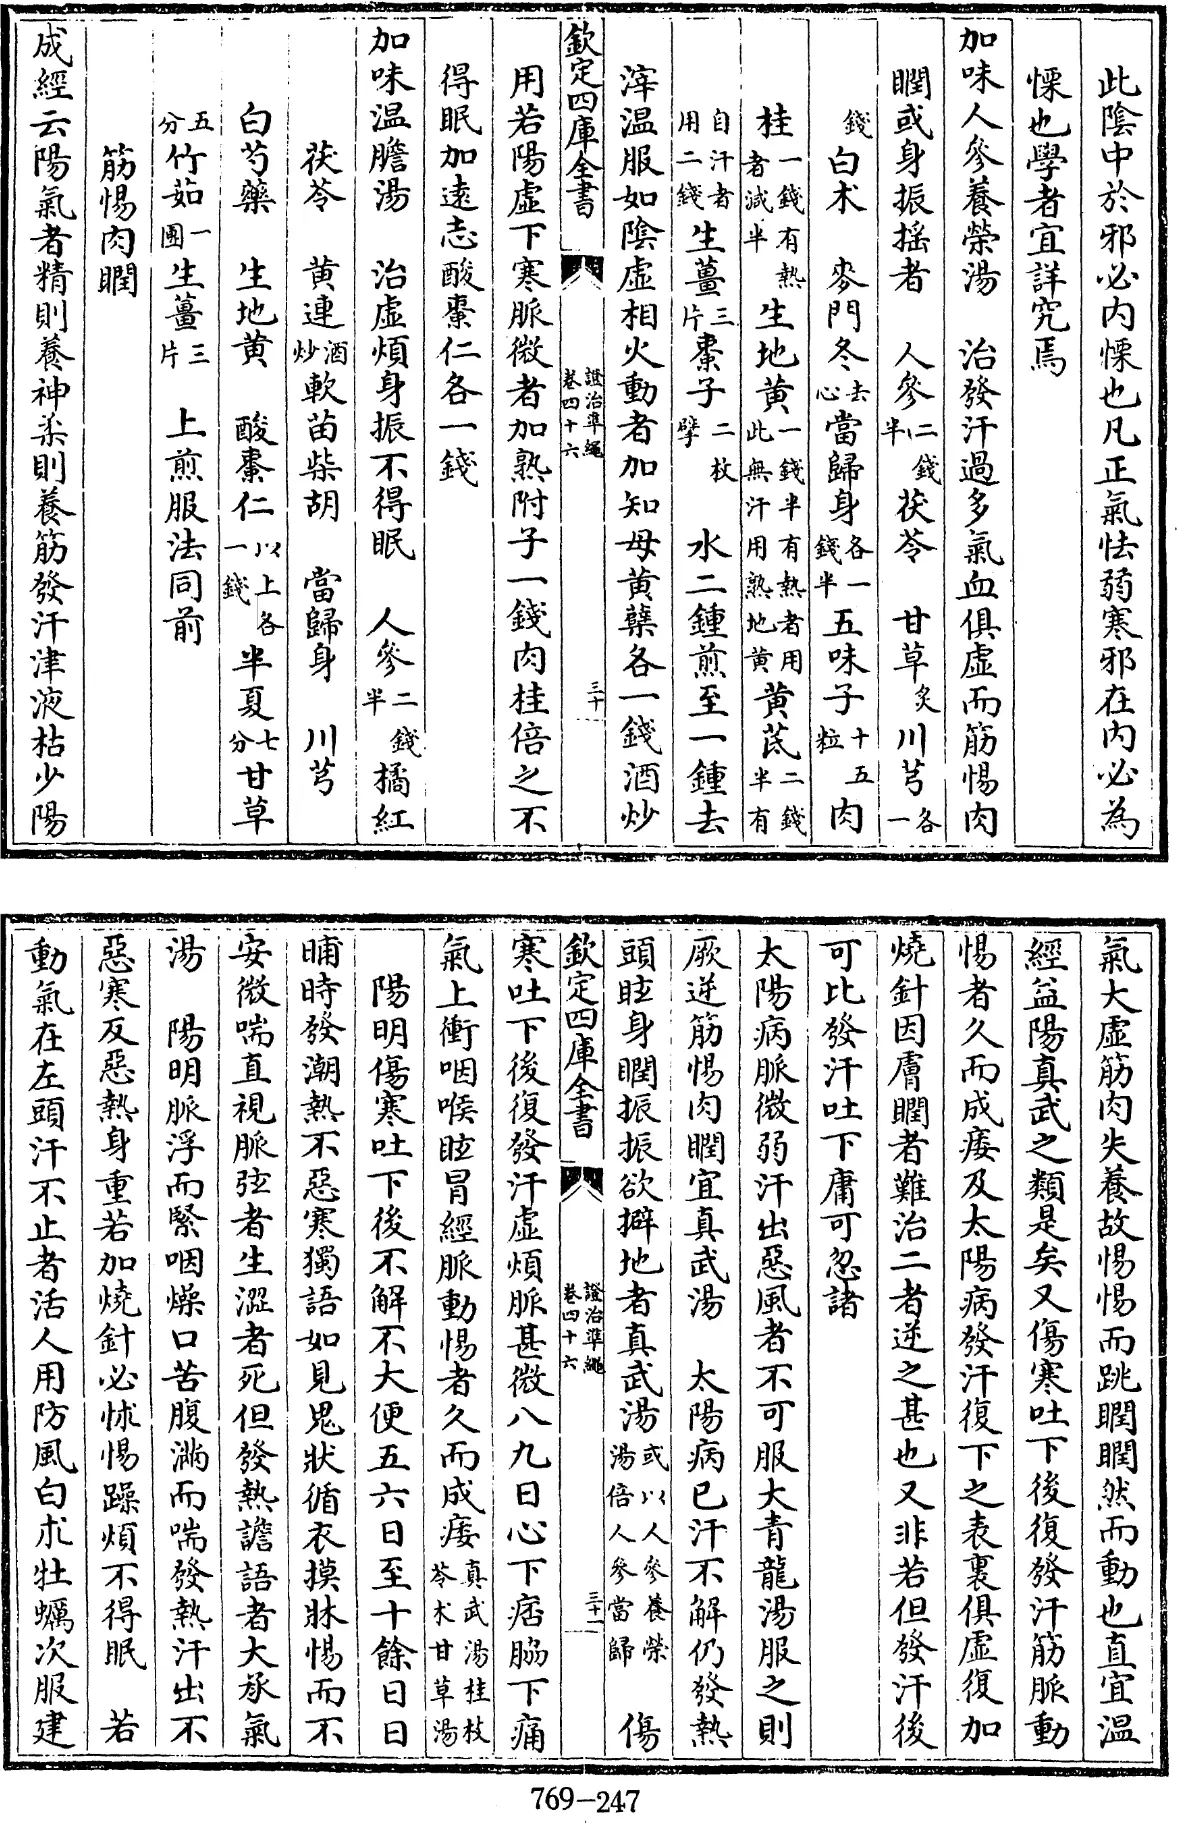 此陰中於邪必内慄也凡正氣怯弱寒邪在内必為
慄也學者宜詳究焉
加味人參養榮湯　治發汗過多氣血俱虛而筋惕肉
瞤或身振揺者　人參二錢半茯苓　甘草炙川芎各一
錢白术　麥門冬去心當歸身各一錢半五味子十五粒肉
桂一錢有熱者減半生地黄一錢半有熱者用此無汗用熟地黄黄芪二錢半有
自汗者用二錢生薑三片棗子二枚擘　水二鍾煎至一鍾去
滓温服如陰虛相火動者加知母黄蘖各一錢酒炒
欽定四庫全書　證治準繩卷四十六　三十
用若陽虛下寒脈微者加熟附子一錢肉桂倍之不
得眠加逺志酸棗仁各一錢
加味温膽湯　治虛煩身振不得眠　人參二錢半橘紅
茯苓　黄連酒炒軟苗柴胡　當歸身　川芎
白芍藥　生地黄　酸棗仁以上各一錢半夏七分甘草
五分竹茹一團生薑三片　上煎服法同前
筋惕肉瞤
成經云陽氣者精則養神柔則養筋發汗津液枯少陽
氣大虛筋肉失養故惕惕而跳瞤瞤然而動也直宜温
經益陽真武之類是矣又傷寒吐下後復發汗筋脈動
惕者久而成痿及太陽病發汗復下之表裏俱虛復加
燒針因膚瞤者難治二者逆之甚也又非若但發汗後
可比發汗吐下庸可忽諸
太陽病脈微弱汗出惡風者不可服大青龍湯服之則
厥逆筋惕肉瞤宜真武湯　太陽病已汗不解仍發熱
頭眩身瞤振振欲擗地者真武湯或以人參養榮湯倍人參當歸　傷
欽定四庫全書　證治準繩卷四十六　三十一
寒吐下後復發汗虛煩脈甚微八九日心下痞脇下痛
氣上衝咽喉眩冒經脈動惕者久而成痿真武湯桂枝苓朮甘草湯
陽明傷寒吐下後不解不大便五六日至十餘日日
晡時發潮熱不惡寒獨語如見鬼狀循衣摸牀惕而不
安微喘直視脈弦者生澀者死但發熱譫語者大承氣
湯　陽明脈浮而緊咽燥口苦腹滿而喘發熱汗出不
惡寒反惡熱身重若加燒針必怵惕躁煩不得眠　若
動氣在左頭汗不止者活人用防風白朮牡蠣次服建
769-247